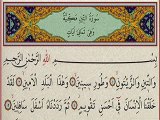 سورة التين مكية
وهي ثمان آيات
بسم الله الرحمن الرحيم
والتين والزيتون وطور سينين وهذا البلد الأمين لقد
خلقنا الإنسان في أحسن تقويم ثم رددناه أسفل سافلين